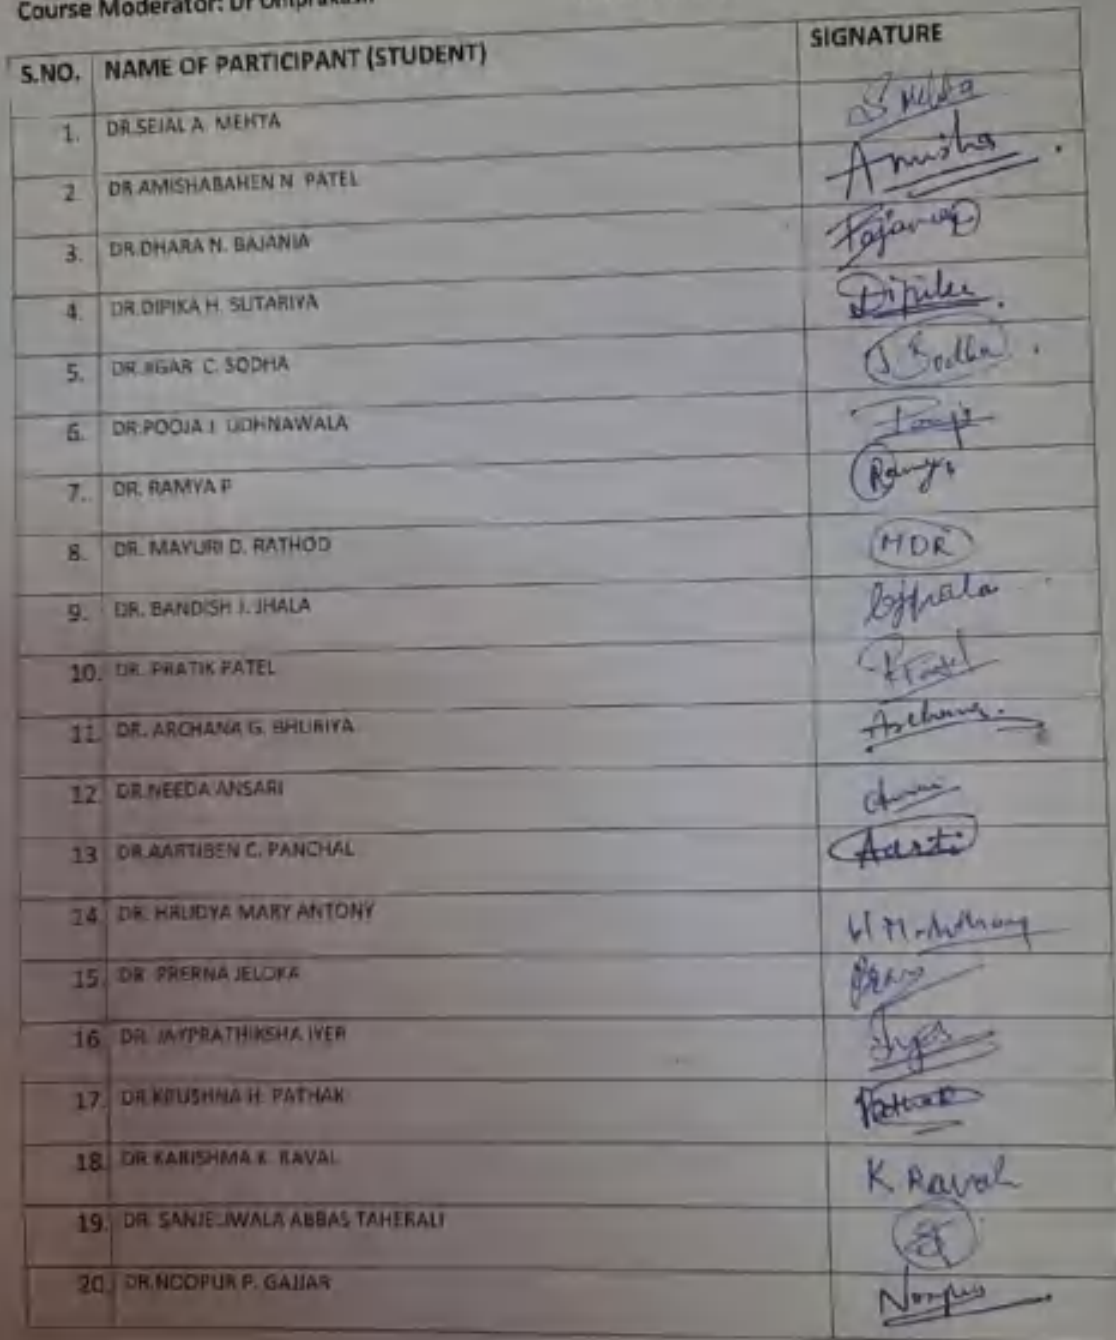 Course Moderator: Dr Omprakash
S.NO. NAME OF PARTICIPANT (STUDENT) SIGNATURE
1. DR.SEJAL A. MEHTA S Mehta
2. DR.AMISHABAHEN N. PATEL Amisha
3. DR.DHARA N. BAJANIA
4. DR.DIPIKA H. SUTARIYA Dipika
5. DR.JIGAR C. SODHA J. Sodha
6. DR.POOJA J. UDHNAWALA Pooja
7. DR. RAMYA P Ramya
8. DR. MAYURI D. RATHOD MDR
9. DR. BANDISH J. JHALA
10. DR. PRATIK PATEL
11. DR. ARCHANA G. BHURIYA Archana.
12. DR.NEEDA ANSARI
13. DR.AARTIBEN C. PANCHAL Aarti
14. DR. HRUDYA MARY ANTONY
15. DR. PRERNA JELOKA
16. DR. JAYPRATHIKSHA IYER
17. DR.KRUSHNA H. PATHAK Pathak
18. DR.KARISHMA K. RAVAL K. Raval
19. DR. SANJELIWALA ABBAS TAHERALI
20. DR.NOOPUR P. GAJJAR Noopur